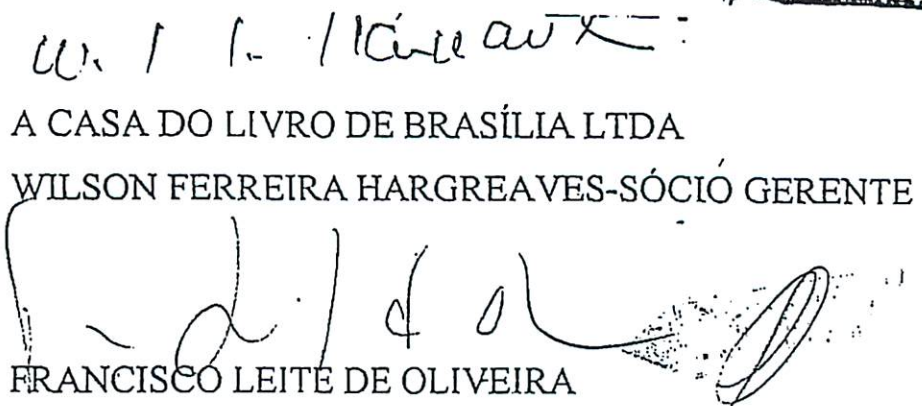 A CASA DO LIVRO DE BRASÍLIA LTDA
WILSON FERREIRA HARGREAVES-SÓCIO GERENTE
FRANCISCO LEITE DE OLIVEIRA